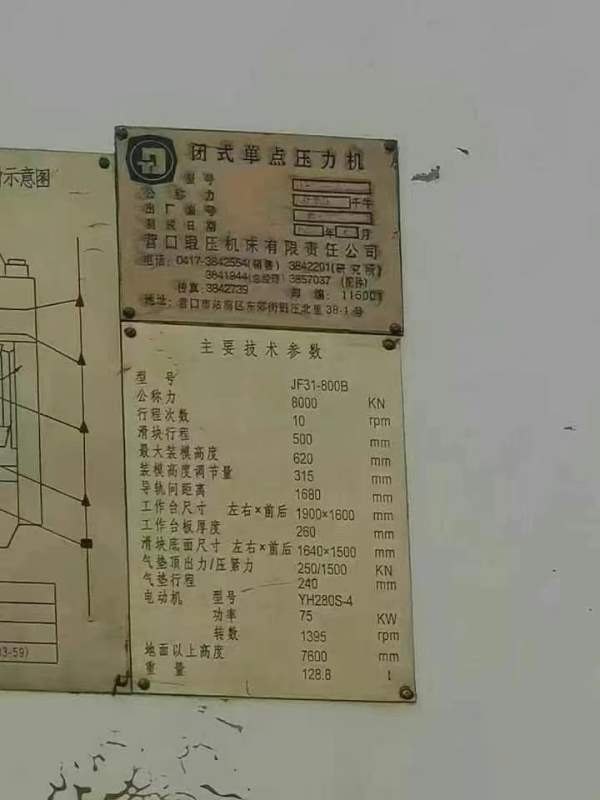 示意图
闭式单点压力机
型号
公称力 千牛
出厂编号
制成日期 年 月
营口锻压机床有限责任公司
电话: 0417-3842554(销售) 3842201(研究所)
3841944(总经理) 3857037 (配件)
传真: 3842739 邮编: 115001
地址: 营口市站前区东郊街锻压北里38-1号
主要技术参数
型号 JF31-800B
公称力 8000 KN
行程次数 10 rpm
滑块行程 500 mm
最大装模高度 620 mm
装模高度调节量 315 mm
导轨间距离 1680 mm
工作台尺寸 左右×前后 1900×1600 mm
工作台板厚度 260 mm
滑块底面尺寸 左右×前后 1640×1500 mm
气垫顶出力/压紧力 250/1500 KN
气垫行程 240 mm
电动机 型号 YH280S-4
功率 75 KW
转数 1395 rpm
地面以上高度 7600 mm
重量 128.8 t
3-59)